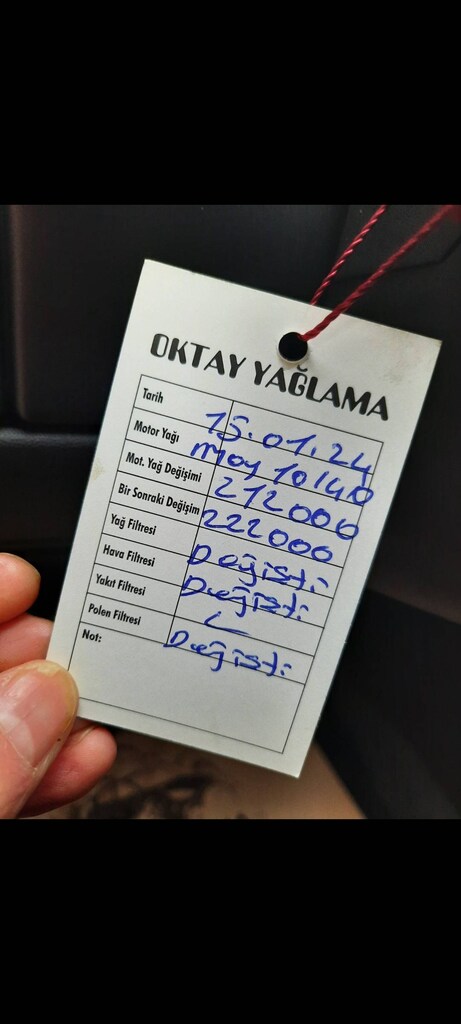 OKTAY YAĞLAMA
Tarih 15.01.24
Motor Yağı moy 10/40
Mot. Yağ Değişimi 212000
Bir Sonraki Değişim 222000
Yağ Filtresi Değişti
Hava Filtresi Değişti
Yakıt Filtresi
Polen Filtresi Değişti
Not: